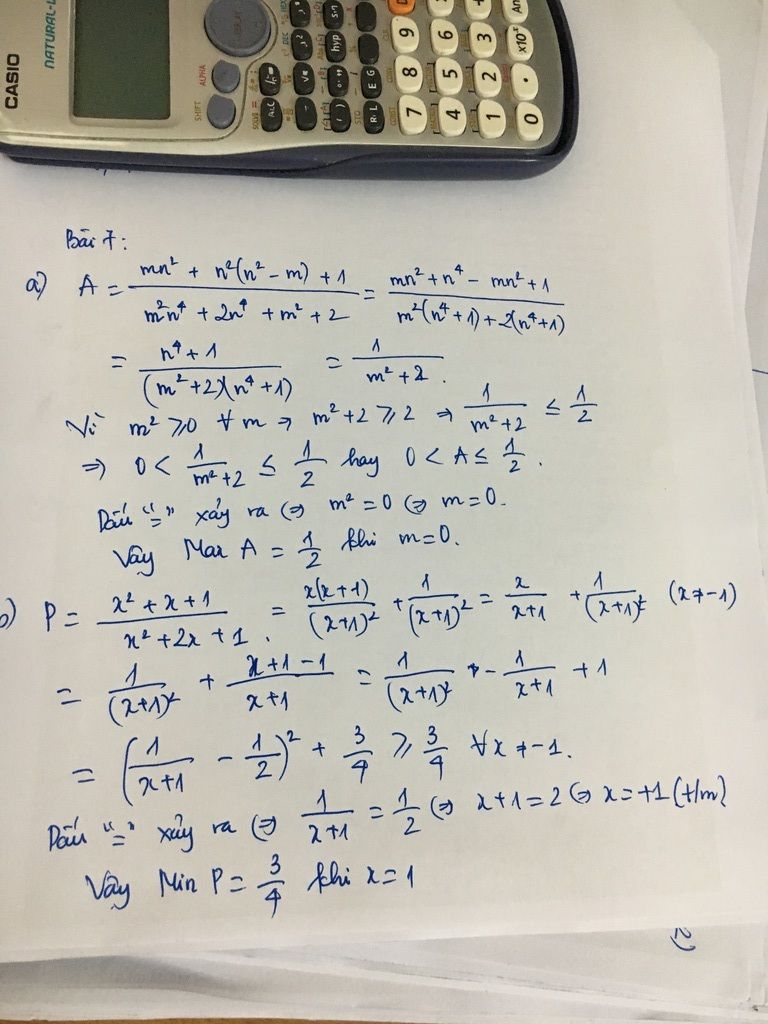 CASIO
NATURAL-
SHIFT
ALPHA
7 8 9
4 5 6
1 2 3
0 . ×10ˣ An
Bài 7:
a) A = (mn² + n²(n² - m) + 1)/(m²n⁴ + 2n⁴ + m² + 2) = (mn² + n⁴ - mn² + 1)/(m²(n⁴+1) + 2(n⁴+1))
= (n⁴ + 1)/((m² + 2)(n⁴ + 1)) = 1/(m² + 2).
Vì m² ⩾ 0 ∀ m ⇒ m² + 2 ⩾ 2 ⇒ 1/(m² + 2) ≤ 1/2
⇒ 0 < 1/(m² + 2) ≤ 1/2 hay 0 < A ≤ 1/2.
Dấu "=" xảy ra ⇔ m² = 0 ⇔ m = 0.
Vậy Max A = 1/2 khi m = 0.
b) P = (x² + x + 1)/(x² + 2x + 1). = x(x+1)/(x+1)² + 1/(x+1)² = x/(x+1) + 1/(x+1)² (x ≠ -1)
= 1/(x+1)² + (x+1-1)/(x+1) = 1/(x+1)² - 1/(x+1) + 1
= (1/(x+1) - 1/2)² + 3/4 ⩾ 3/4 ∀x ≠ -1.
Dấu "=" xảy ra ⇔ 1/(x+1) = 1/2 ⇔ x+1 = 2 ⇔ x = +1 (t/m)
Vậy Min P = 3/4 khi x = 1